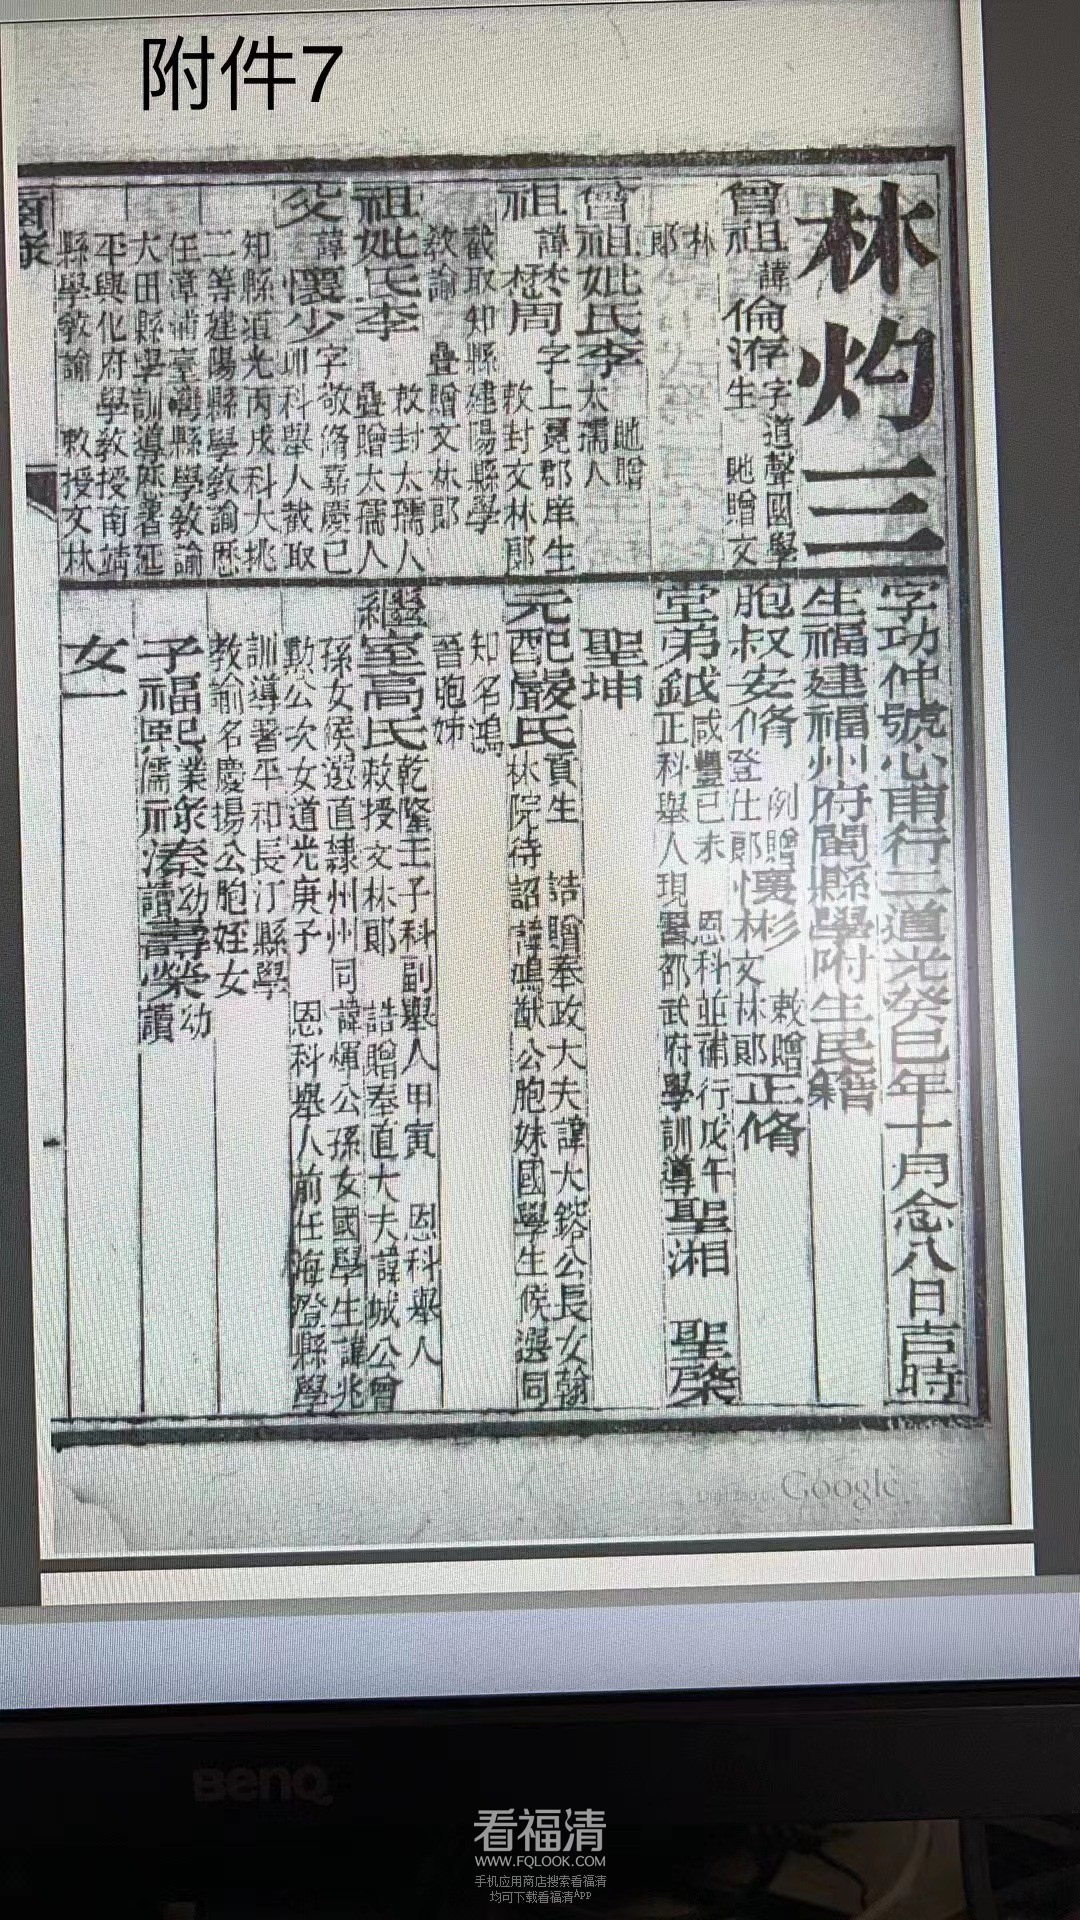 附件7
林灼三
曾祖
諱倫洊字道聲國學
生 貤贈文
林
郎
曾祖妣氏李 貤贈
太孺人
祖
諱懋周字上冕郡庠生
敕封文林郎
截取知縣建陽縣學
教諭 疊贈文林郎
祖妣氏李 敕封太孺人
疊贈太孺人
父
諱懷少字敬脩嘉慶己
卯科舉人截取
知縣道光丙戌科大挑
二等建陽縣學教諭歷
任漳浦臺灣縣學教諭
大田縣學訓導陞署延
平興化府學教授南靖
縣學教諭 敕授文林
字功仲號心甫行二道光癸巳年十月念八日吉時
生福建福州府閩縣學附生民籍
胞叔安脩 例贈
登仕郎懷彬 敕贈
文林郎正脩
堂弟鉞咸豐己未 恩科並補行戊午
正科舉人現署邵武府學訓導聖湘 聖棨
聖坤
元配嚴氏貢生 誥贈奉政大夫諱大鎔公長女翰
林院待詔諱鳴猷公胞妹國學生候選同
知名鴻
晉胞姊
繼室高氏乾隆壬子科副舉人甲寅 恩科舉人
敕授文林郎 誥贈奉直大夫諱城公曾
孫女候選直隸州州同諱煇公孫女國學生諱兆
勲公次女道光庚子 恩科舉人前任海澄縣學
訓導署平和長汀縣學
教諭名慶揚公胞姪女
子福熙業儒 承秦幼讀 壽榮幼讀
女一
Google
BenQ
看福清
WWW.FQLOOK.COM
手机应用商店搜索看福清
均可下载看福清App